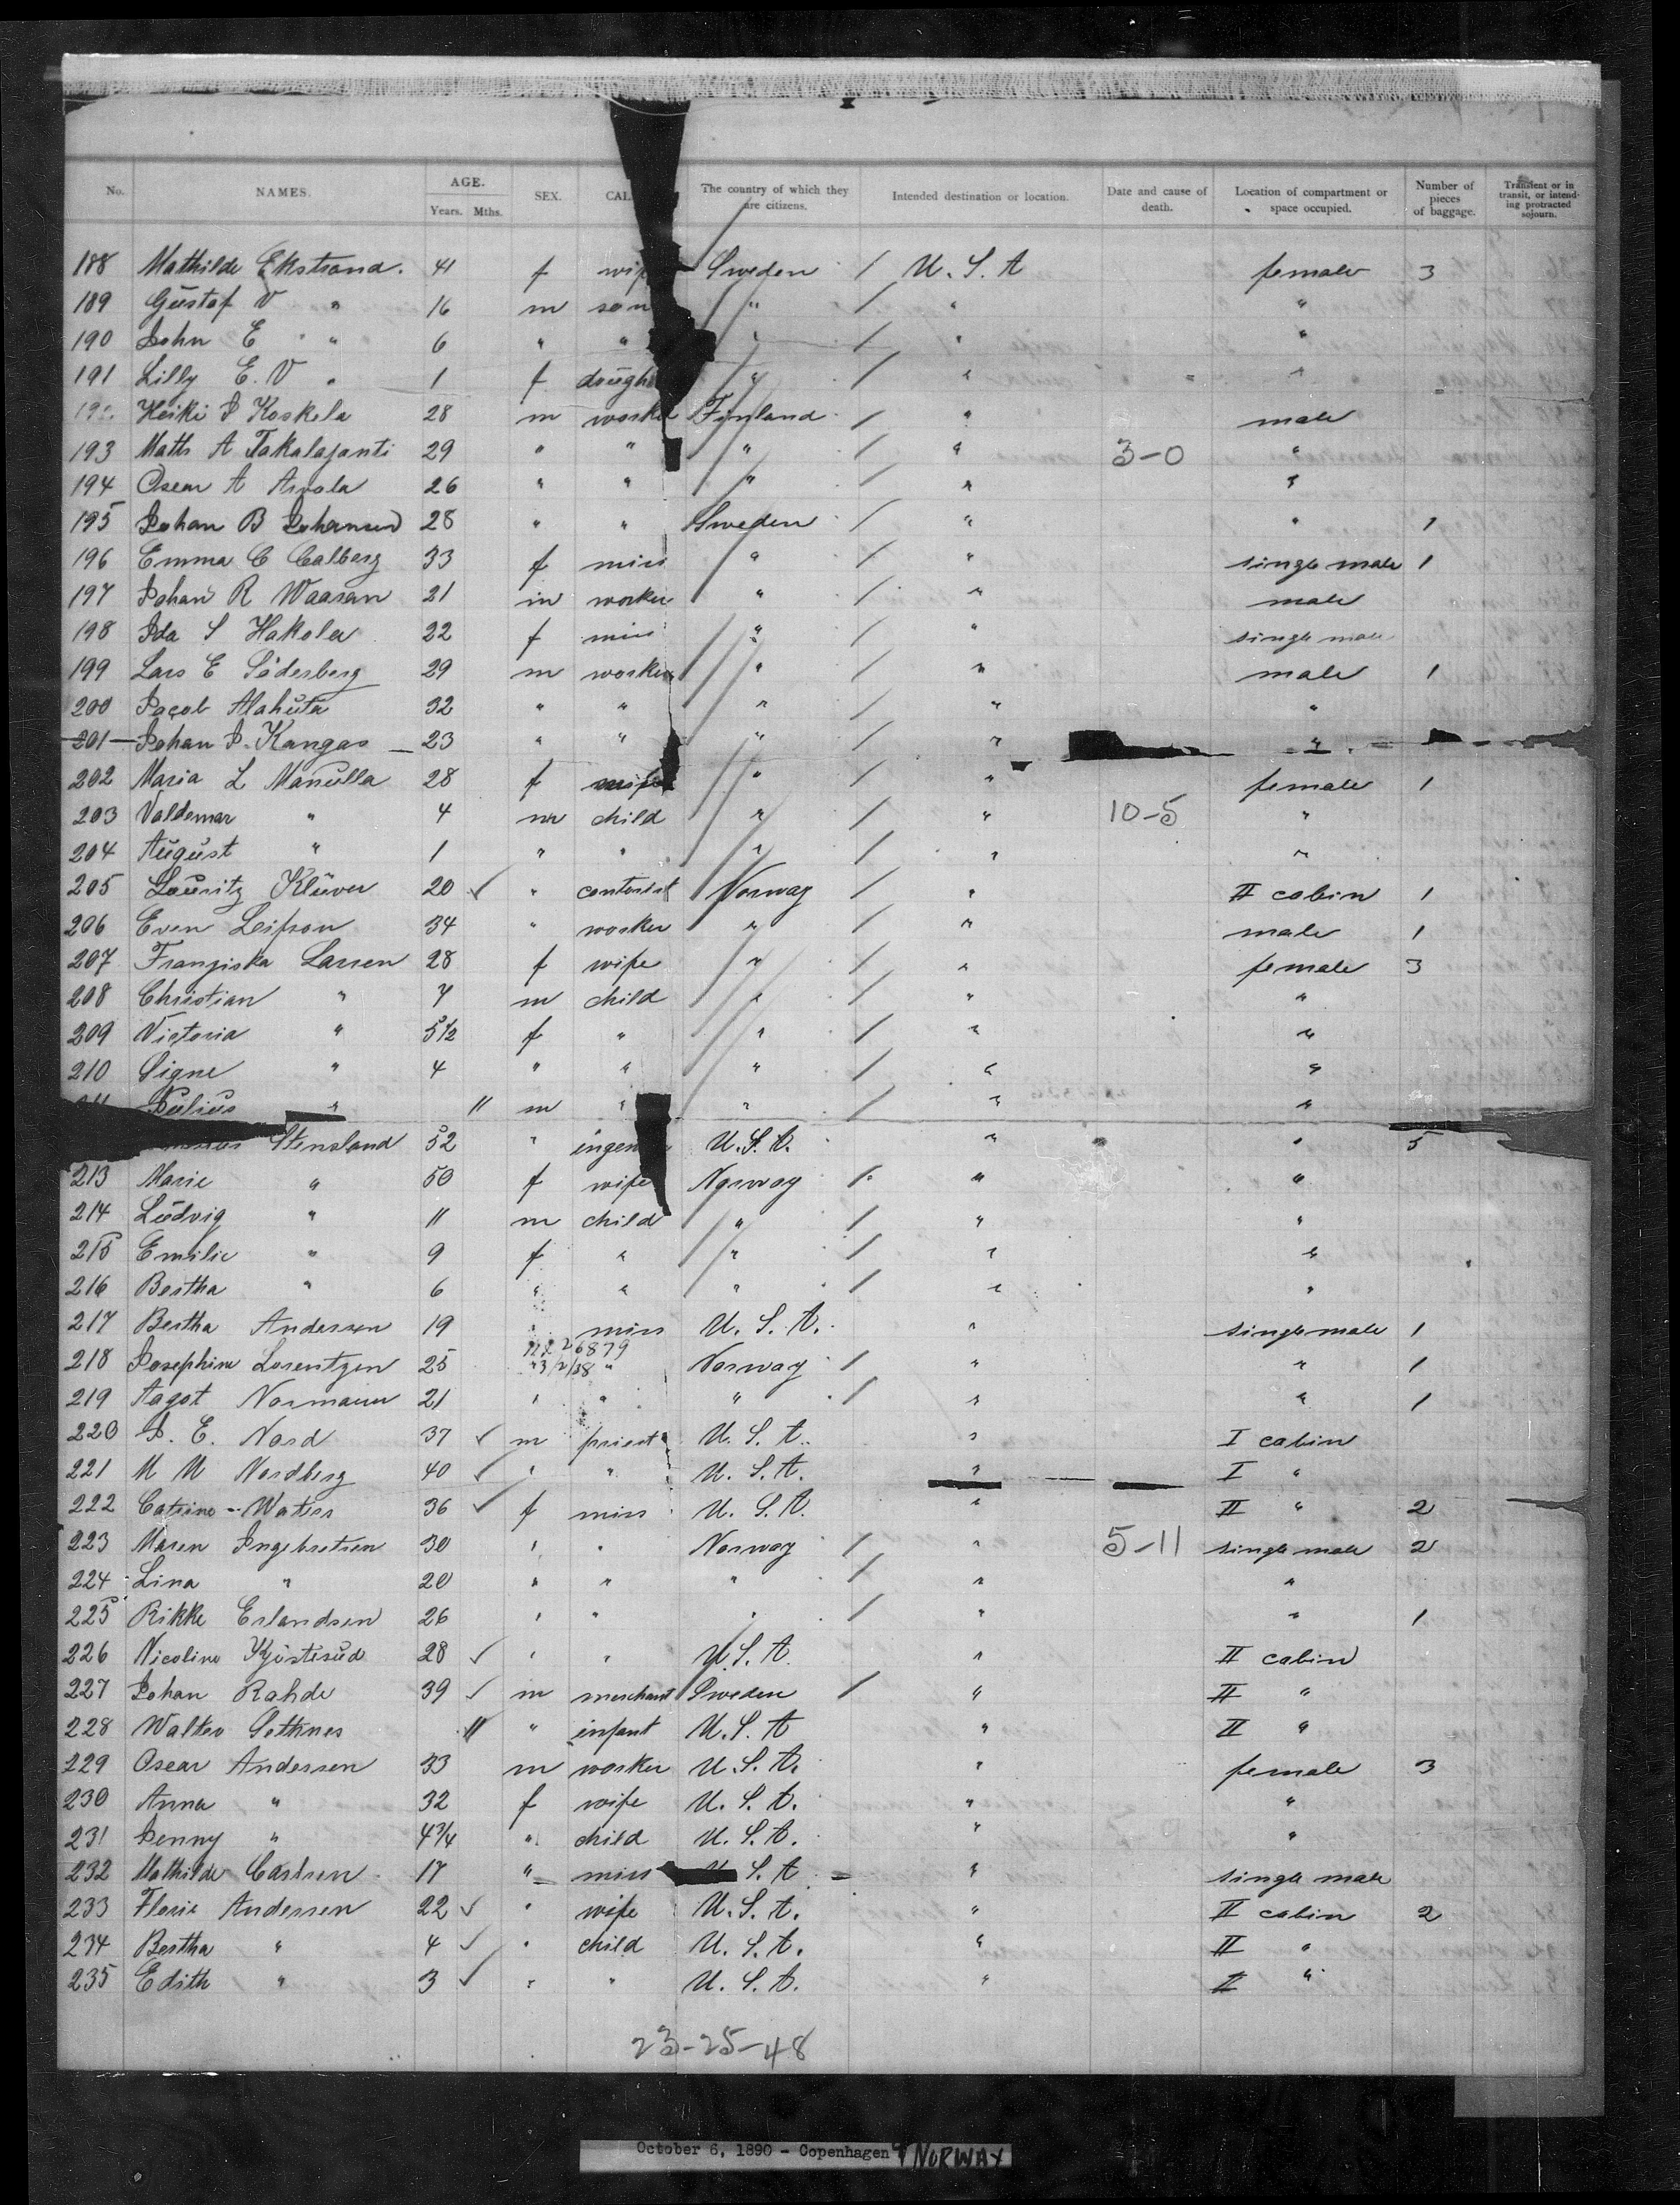 No. NAMES. AGE. Years. Mths. SEX. CAL The country of which they are citizens. Intended destination or location. Date and cause of death. Location of compartment or space occupied. Number of pieces of baggage. Transient or in transit, or intending protracted sojourn.
188 Mathilde Ekstrand. 41 f wif Sweden / U.S.A female 3
189 Gustaf V " 16 m son " / " "
190 John E " " 6 " " " / " "
191 Lilly E. V " 1 f daugh " / " "
Heiki J Koskela 28 m worker Finland / " male
193 Matts A Takalajanti 29 " " " / " 3-0 "
194 Oscar A Arvola 26 " " " / " "
195 Johan B Johansen 28 " " Sweden / " " 1
196 Emma C Calberg 33 f miss " / " single male 1
197 Johan R Waasan 21 m worker " / " male
198 Ida S Hakola 22 f miss " / " single male
199 Lars E Söderberg 29 m worker " / " male 1
200 Jacob Alahuta 32 " " " / " "
201 Johan J. Kangas 23 " " " / " "
202 Maria L Manulla 28 f wife " / " female 1
203 Valdemar " 4 m child " / " 10-5 "
204 August " 1 " " " / " "
205 Louritz Klüver 20 ✓ " contorist Norway / " II cabin 1
206 Even Leifson 34 " worker " / " male 1
207 Franziska Larsen 28 f wife " / " female 3
208 Christian " 7 m child " / " "
209 Victoria " 5 1/2 f " " / " "
210 Signe " 4 " " " / " "
Julius " 11 m " " / " "
Stensland 52 " ingen U.S.A. " " 5
213 Marie " 50 f wife Norway / " "
214 Ludvig " 11 m child " / " "
215 Emilie " 9 f " " / " "
216 Bertha " 6 " " " / " "
217 Bertha Andersen 19 " miss U.S.A. " single male 1
26879
218 Josephine Lorentzen 25 3/2/38 " Norway / " " 1
219 Aagot Normann 21 " " " / " " 1
220 J. E. Nord 37 ✓ m priest U.S.A. " I cabin
221 M M Nordberg 40 ✓ " " U.S.A. " I "
222 Catrine Waters 36 ✓ f miss U.S.A. " II " 2
223 Maren Ingebretsen 30 " " Norway / " 5-11 single male 2
224 Lina " 20 " " " / " "
225 Rikke Erlandsen 26 " " " / " " 1
226 Nicoline 28 ✓ " " U.S.A. " II cabin
227 Johan Rahde 39 ✓ m merchant Sweden / " II "
228 Walter Settnes 11 " infant U.S.A " II "
229 Oscar Andersen 33 m worker U.S.A. " female 3
230 Anna " 32 f wife U.S.A. " "
231 Jenny " 4 3/4 " child U.S.A. " "
232 Mathilde Carlsen 17 " miss U.S.A " single male
233 Florie Andersen 22 ✓ " wife U.S.A. " II cabin 2
234 Bertha " 4 ✓ " child U.S.A. " II "
235 Edith " 3 ✓ " " U.S.A. " II "
23-25-48
October 6, 1890 - Copenhagen & NORWAY